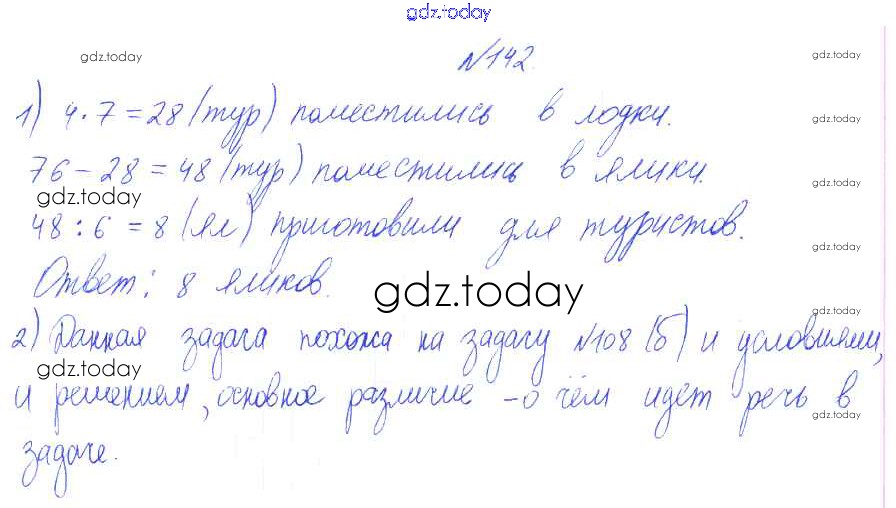 gdz.today
gdz.today
№142.
gdz.today
1) 4·7=28 (тур) поместились в лодки.
gdz.today
76-28=48 (тур) поместились в ялики.
gdz.today
gdz.today
48:6=8 (ял) приготовили для туристов.
gdz.today
Ответ: 8 яликов.
gdz.today
gdz.today
2) Данная задача похожа на задачу №108 (б) и условиями,
gdz.today
gdz.today
и решением, основное различие - о чём идёт речь в
gdz.today
задаче.